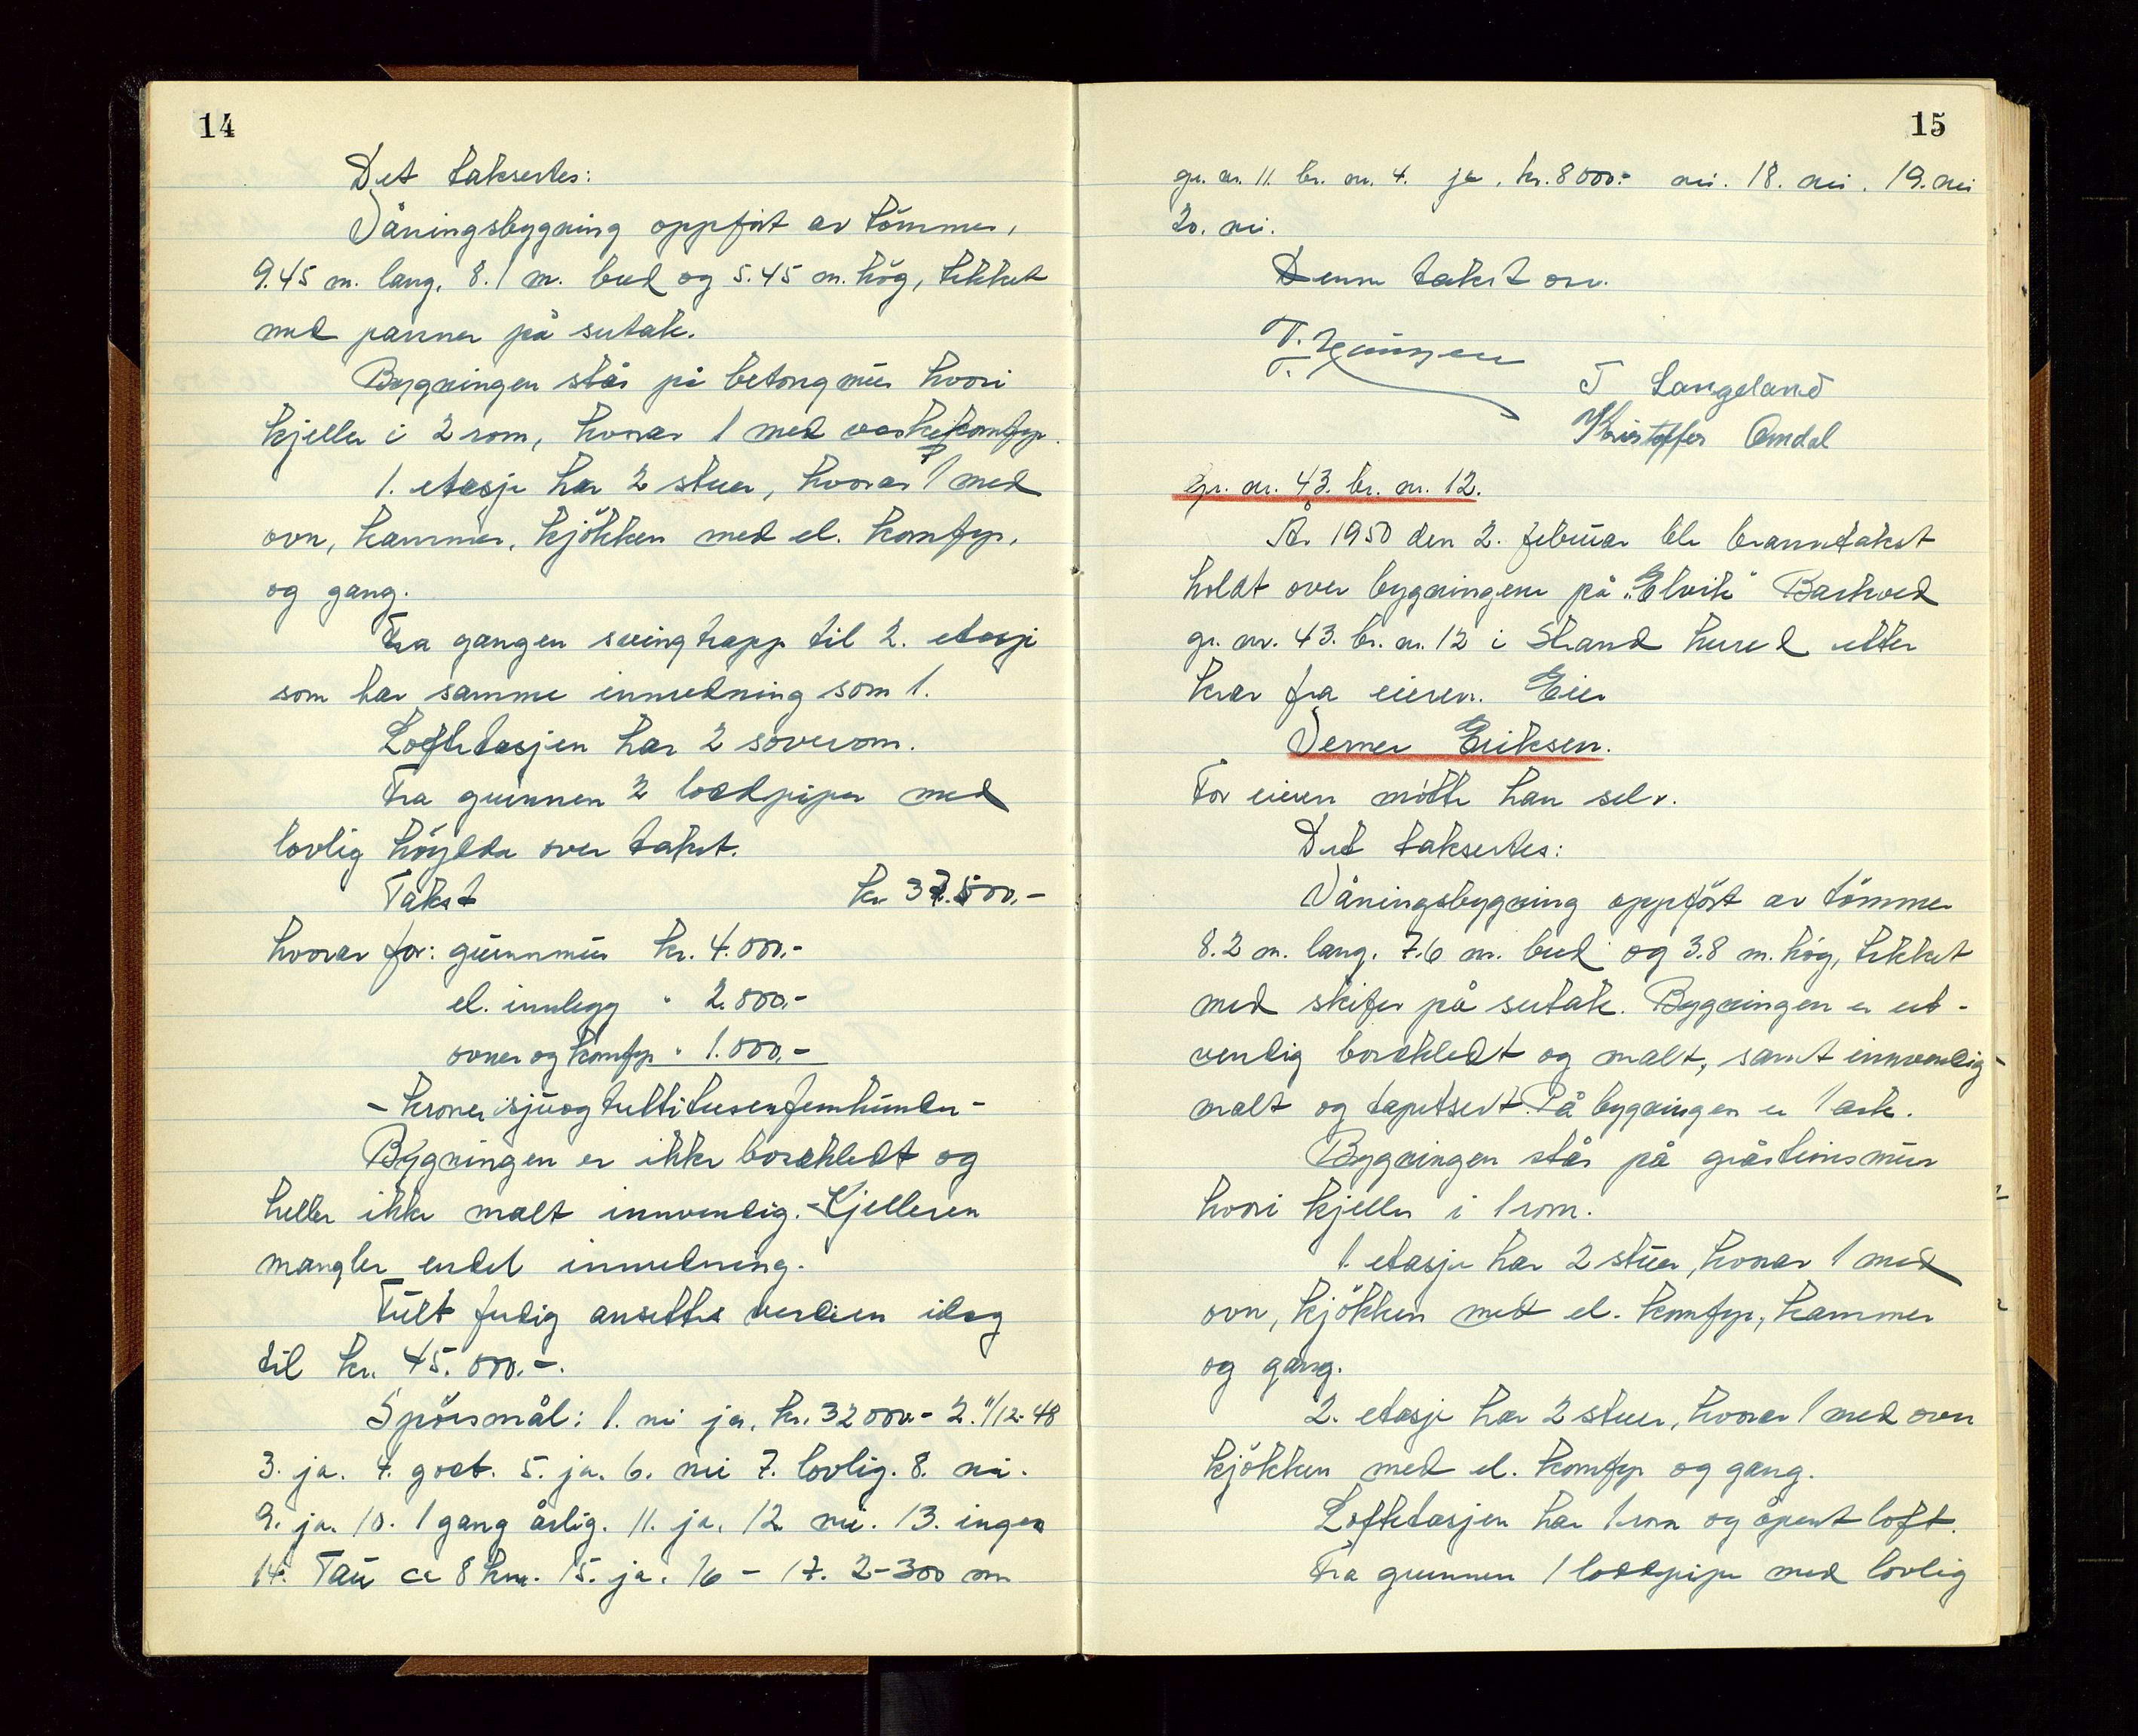 14
Det taksertes:
Våningsbygning oppført av tømmer,
9.45 m. lang, 8.1 m. bred og 5.45 m. høg, tekket
med panner på sutak.
Bygningen står på betongmur hvori
kjeller i 2 rom, hvorav 1 med vaskekomfyr.
1. etasje har 2 stuer, hvorav 1 med
ovn, kammer, kjøkken med el. komfyr,
og gang.
Fra gangen svingtrapp til 2. etasje
som har samme innredning som 1.
Loftetasjen har 2 soverom.
Fra grunnen 2 loddpiper med
lovlig høyde over taket.
Takst kr. 37.500.-
hvorav for: grunnmur kr. 4.000.-
el. innlegg " 2.000.-
ovner og komfyr " 1.000.-
- kroner sjuogtrettitusenfemhundre -
Bygningen er ikke bordkledt og
heller ikke malt innvendig. - Kjelleren
mangler endel innredning.
Fullt ferdig ansettes verdien idag
til kr. 45.000.-.
Spørsmål: 1. nei ja, kr. 32000.- 2. 11/12-48
3. ja. 4. godt. 5. ja. 6. nei 7. lovlig. 8. nei.
9. ja. 10. 1 gang årlig. 11. ja. 12 nei. 13. ingen
14. Tau ca 8 km. 15. ja. 16 - 17. 2-300 m
15
gr. nr. 11. br. nr. 4. ja, kr. 8000.- nei. 18. nei. 19. nei
20. nei.
Denne takst osv.
T. Langeland
Kristoffer Omdal
Gr. nr. 43. br. nr. 12.
År 1950 den 2. februar ble branntakst
holdt over bygningene på "Elvik" Barkved
gr. nr. 43. br. nr. 12 i Strand herred etter
krav fra eieren. Eier
Verner Eriksen.
For eieren møtte han selv.
Det taksertes:
Våningsbygning oppført av tømmer
8.2 m. lang, 7.6 m. bred og 3.8 m. høg, tekket
med skifer på sutak. Bygningen er ut-
vendig bordkledt og malt, samt innvendig
malt og tapetsert. På bygningen er 1 ark.
Bygningen står på gråsteinsmur
hvori kjeller i 1 rom.
1. etasje har 2 stuer, hvorav 1 med
ovn, kjøkken med el. komfyr, kammer
og gang.
2. etasje har 2 stuer, hvorav 1 med ovn
kjøkken med el. komfyr og gang.
Loftetasjen har 1 rom og åpent loft.
Fra grunnen 1 loddpipe med lovlig